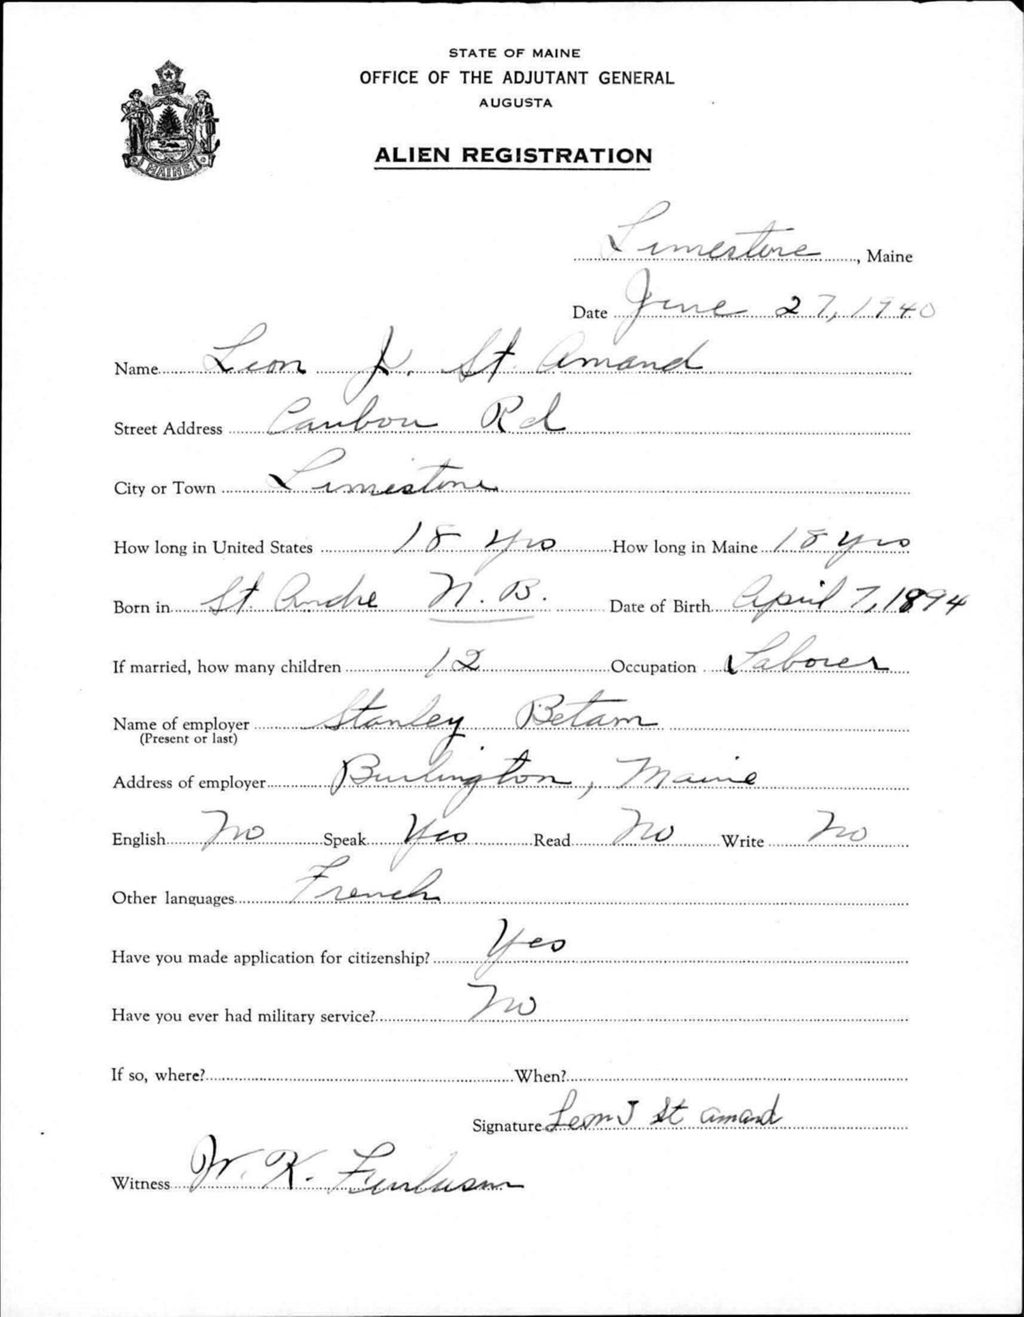 STATE OF MAINE
OFFICE OF THE ADJUTANT GENERAL
AUGUSTA
MAINE
ALIEN REGISTRATION
Limestone, Maine
Date June 27, 1940
Name Leon J. St. Amand
Street Address Caribou Rd
City or Town Limestone
How long in United States 18 yrs How long in Maine 18 yrs
Born in St Andre N.B. Date of Birth April 7, 1894
If married, how many children 12 Occupation Laborer
Name of employer Stanley Betam
(Present or last)
Address of employer Burlington, Maine
English No Speak Yes Read No Write No
Other languages French
Have you made application for citizenship? Yes
Have you ever had military service? No
If so, where? When?
Signature Leon J St Amand
Witness W. K.